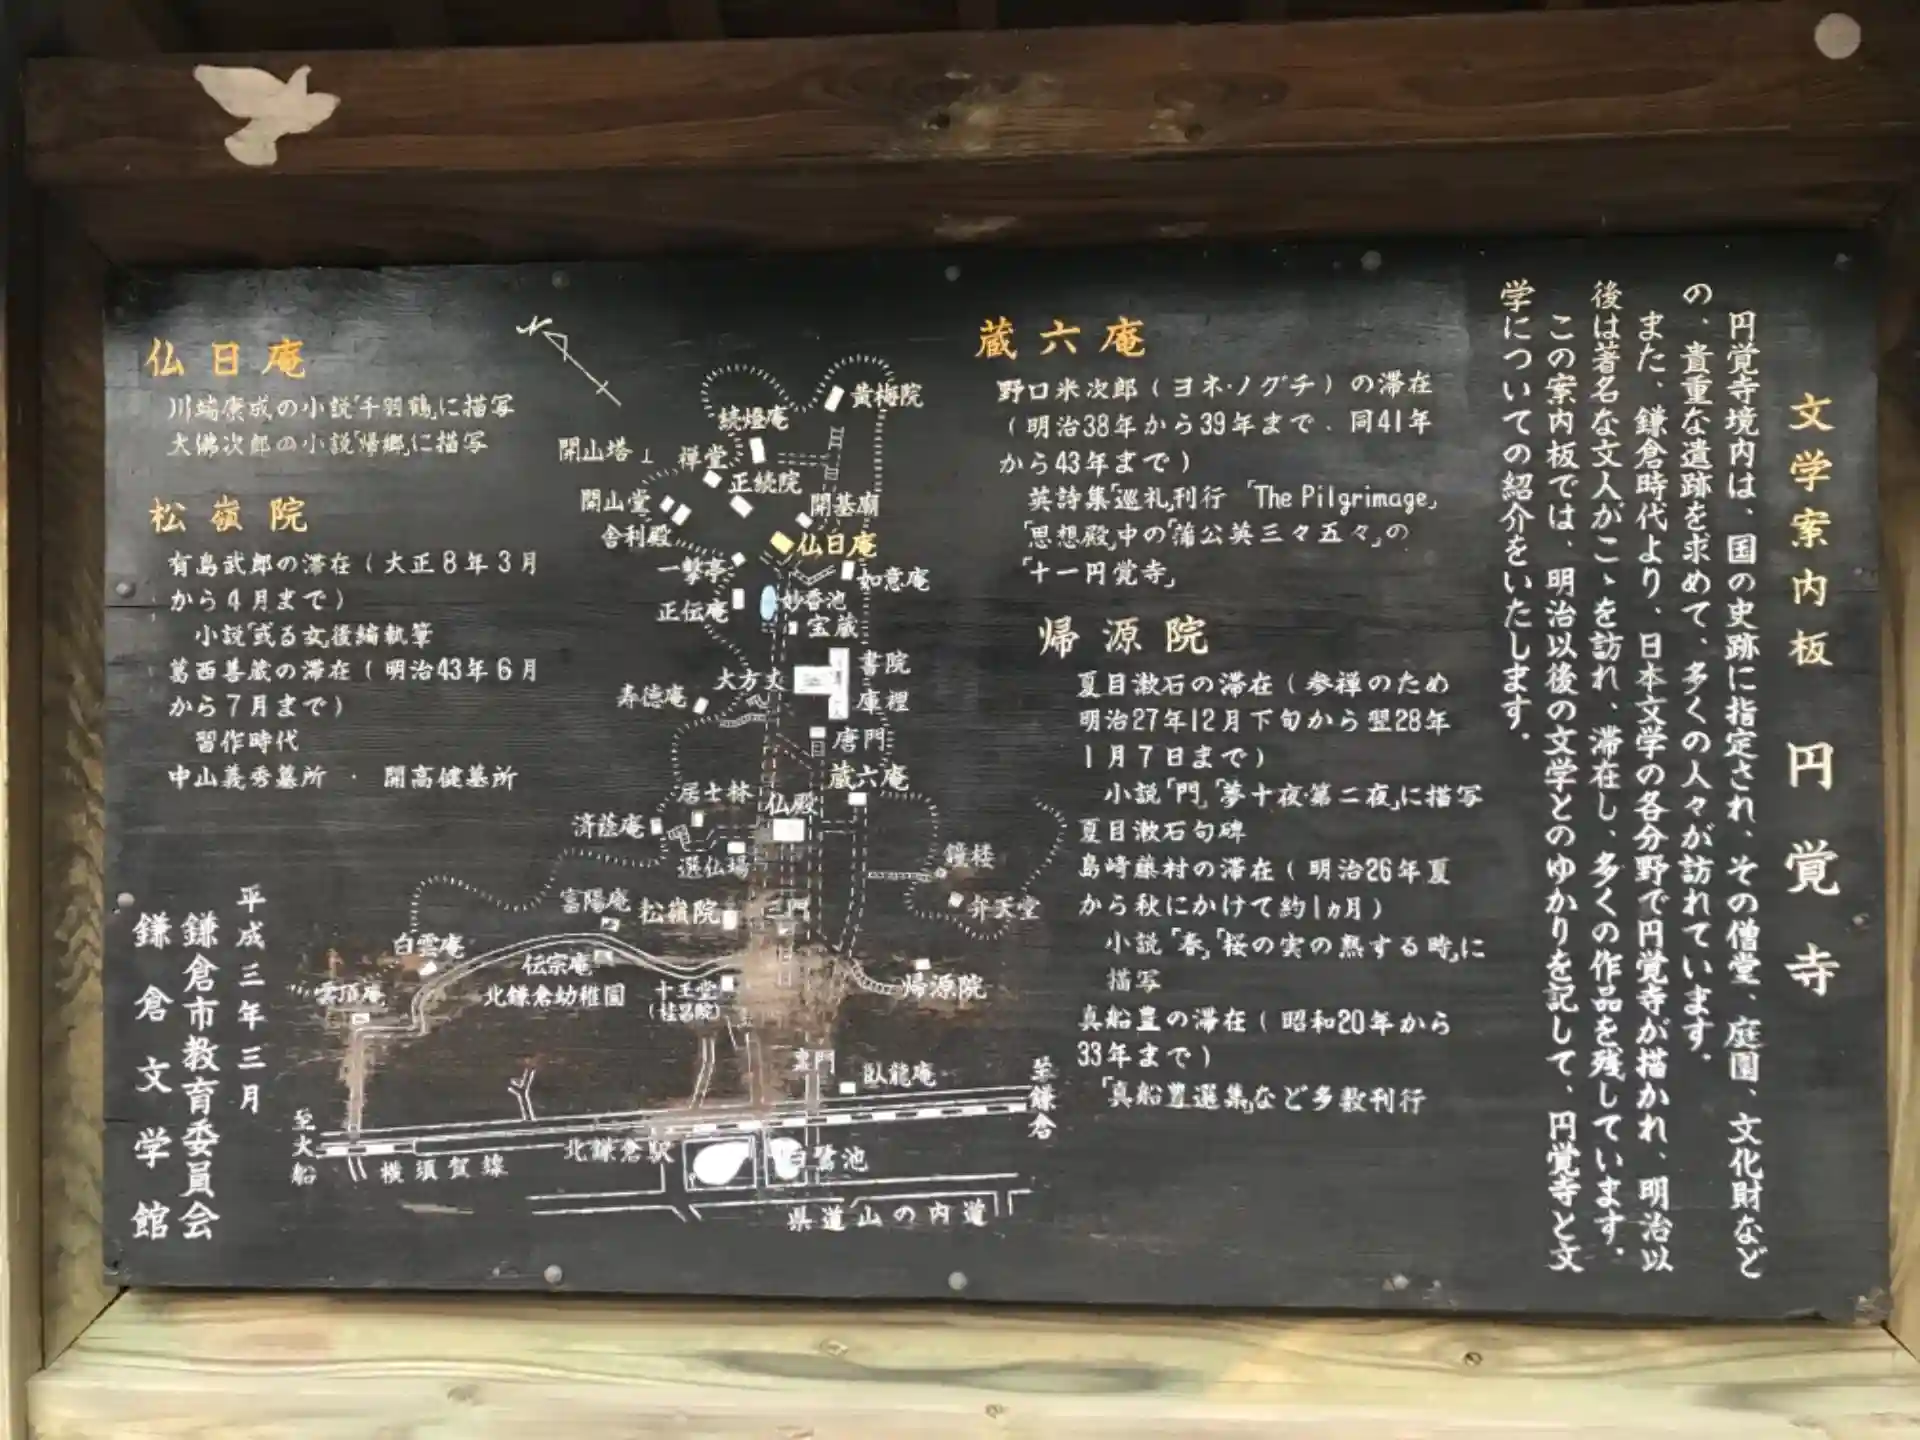 文学案内板 円覚寺
円覚寺境内は、国の史跡に指定され、その僧堂、庭園、文化財など
の、貴重な遺跡を求めて、多くの人々が訪れています。
また、鎌倉時代より、日本文学の各分野で円覚寺が描かれ、明治以
後は著名な文人がこゝを訪れ、滞在し、多くの作品を残しています。
この案内板では、明治以後の文学とのゆかりを記して、円覚寺と文
学についての紹介をいたします。
蔵六庵
野口米次郎(ヨネ・ノグチ)の滞在
(明治38年から39年まで、同41年
から43年まで)
英詩集「巡礼」刊行 「The Pilgrimage」
「思想殿」中の「蒲公英三々五々」の
「十一円覚寺」
帰源院
夏目漱石の滞在(参禅のため
明治27年12月下旬から翌28年
1月7日まで)
小説「門」「夢十夜・第二夜」に描写
夏目漱石句碑
島崎藤村の滞在(明治26年夏
から秋にかけて約1ヵ月)
小説「春」「桜の実の熟する時」に
描写
真船豊の滞在(昭和20年から
33年まで)
「真船豊選集」など多数刊行
仏日庵
川端康成の小説「千羽鶴」に描写
大佛次郎の小説「帰郷」に描写
松嶺院
有島武郎の滞在(大正8年3月
から4月まで)
小説「或る女」後編執筆
葛西善蔵の滞在(明治43年6月
から7月まで)
習作時代
中山義秀墓所 ・ 開高健墓所
N
黄梅院
続燈庵
開山塔
禅堂
正続院
開山堂
開基廟
舎利殿
仏日庵
一撃亭
如意庵
妙香池
正伝庵
宝蔵
書院
大方丈
寿徳庵
庫裡
唐門
蔵六庵
居士林
仏殿
済蔭庵
選仏場
鐘楼
富陽庵
松嶺院
三門
弁天堂
白雲庵
伝宗庵
北鎌倉幼稚園
十王堂
(桂昌院)
雲頂庵
帰源院
臥龍庵
至鎌倉
至大船
横須賀線
北鎌倉駅
白鷺池
県道山の内道
平成三年三月
鎌倉市教育委員会
鎌倉文学館